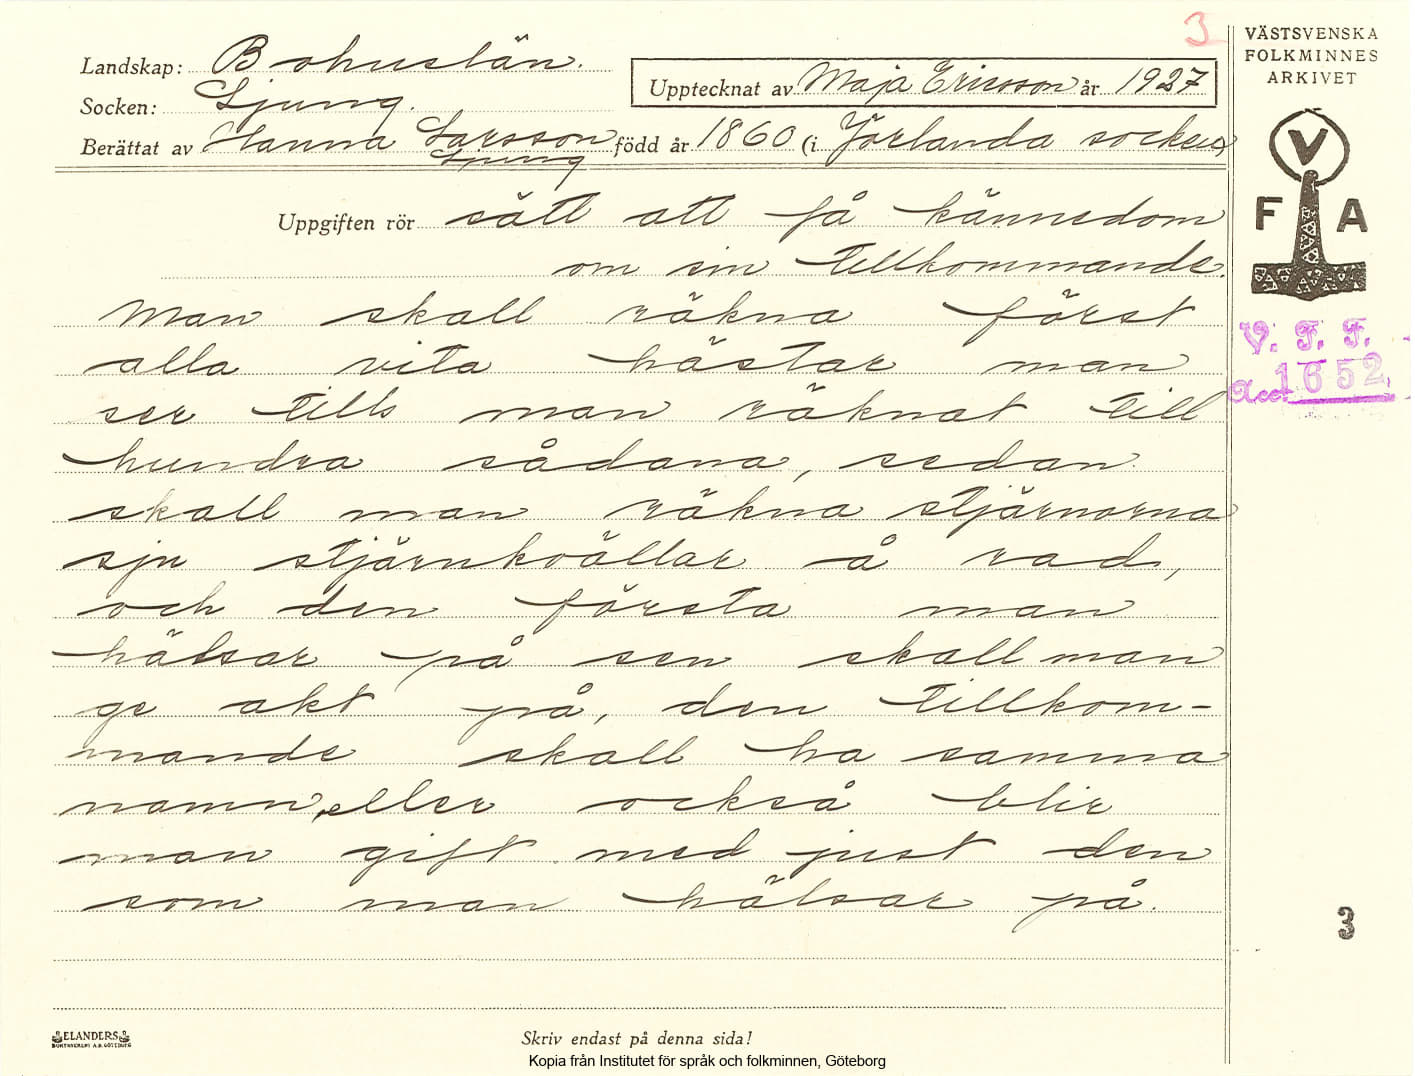 3
VÄSTSVENSKA
FOLKMINNES
ARKIVET
Landskap: Bohuslän.
Socken: Ljung.
Upptecknat av Maja Ericsson år 1927
Berättat av Hanna Larsson född år 1860 (i Jörlanda socken)
Ljung
V
F A
Uppgiften rör sätt att få kännedom
om sin tillkommande.
Man skall räkna först
alla vita hästar man
ser tills man räknat till
hundra sådana, sedan
skall man räkna stjärnorna
sju stjärnkvällar å rad,
och den första man
hälsar på sen skall man
ge akt på, den tillkom-
mande skall ha samma
namn, eller också blir
man gift med just den
som man hälsar på.
V. F. F.
Acc. 1652
3
ELANDERS
BOKTRYCKERI A.B. GÖTEBORG
Skriv endast på denna sida!
Kopia från Institutet för språk och folkminnen, Göteborg